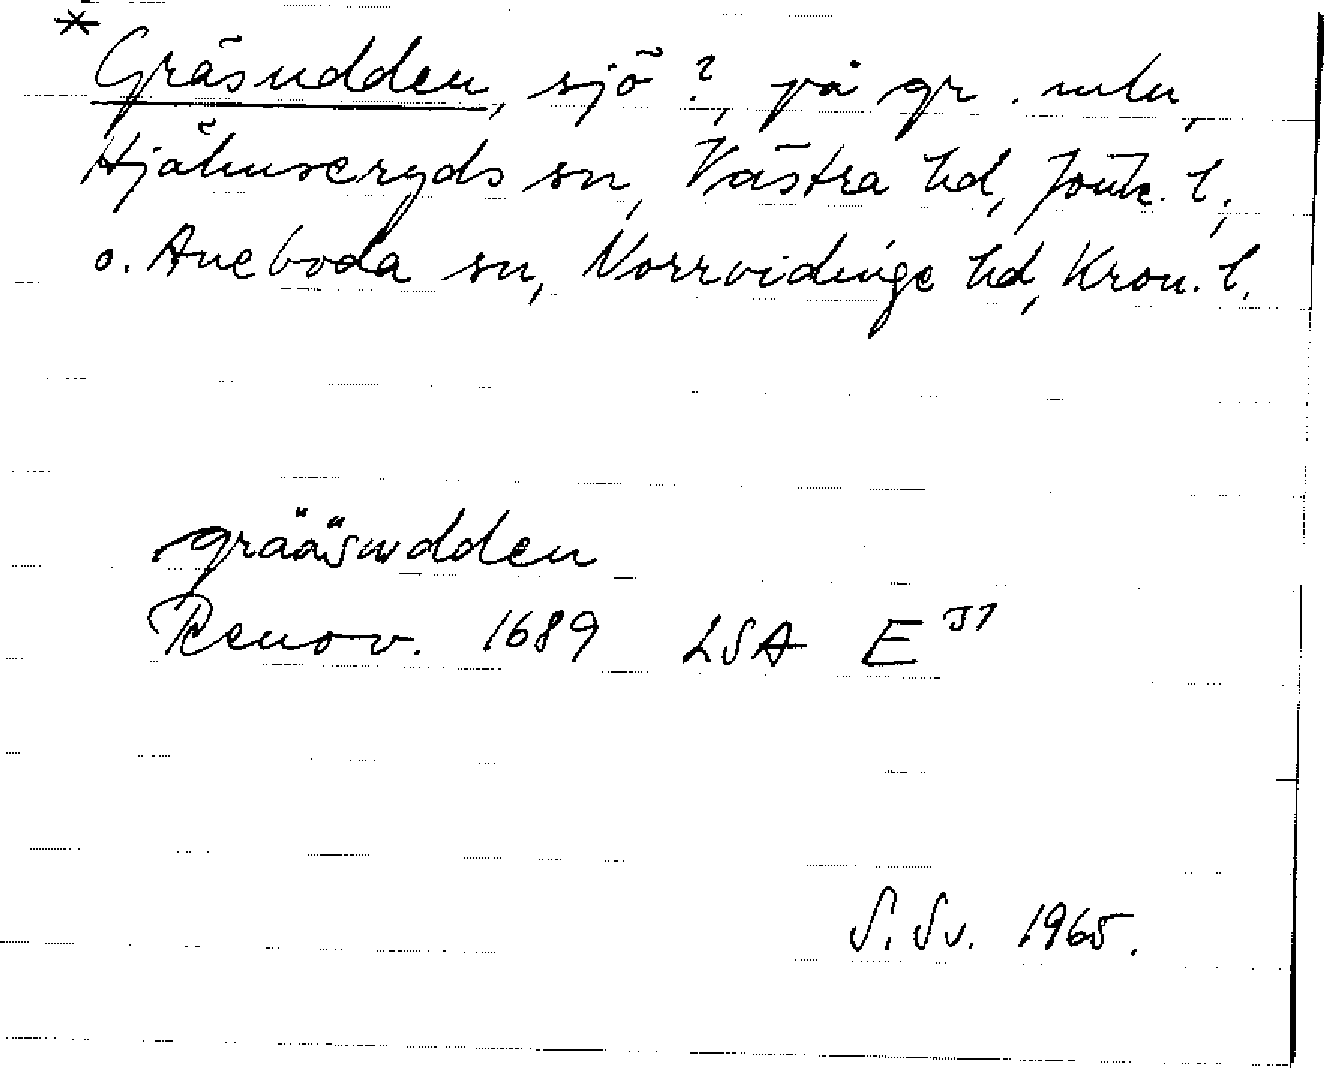 * Gräsudden, sjö?, på gr. mln,
Hjälmseryds sn, Västra hd, Jönk. l.,
o. Aneboda sn, Norrvidinge hd, Kron. l.
grääsuddden
Renov. 1689 LSA E
S. Sv. 1965.